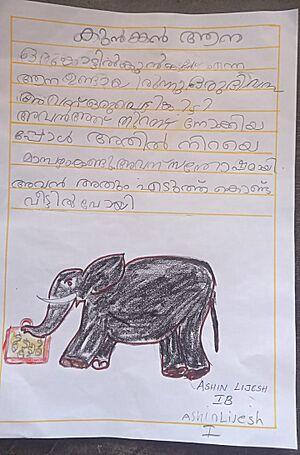 കുൻകൻ ആന
ഒരു കാട്ടിൽ കുൻകൻ എന്ന
ആന ഉണ്ടായിരുന്നു ഒരു ദിവസം
അവന് ഒരു പെട്ടി കിട്ടി
അവൻ അത് തുറന്ന് നോക്കിയ
പ്പോൾ അതിൽ നിറയെ
മാമ്പഴം കണ്ടു അവന് സന്തോഷമായി
അവൻ അതും എടുത്ത് കൊണ്ട്
വീട്ടിൽ പോയി
ASHIN LIJESH
IB
AShin Lijesh
I